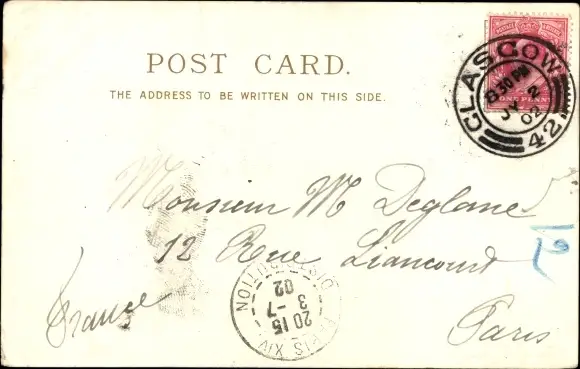 POST CARD.
THE ADDRESS TO BE WRITTEN ON THIS SIDE.
GLASGOW
8 30 PM
JY 2
02
42
ONE PENNY
Monsieur M Deglane
12 Rue Liancourt
Paris
France
PARIS XIV
20 15
3 -7
02
DISTRIBUTION